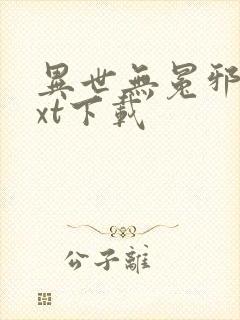 異世無冕邪
xt下載
公子離